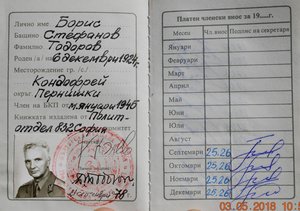 Лично име Борис
Бащино Стефанов
Фамилно Тодоров
Роден (а) на 6 декември 1924 г.
Месторождение гр. /с./
Кондофрей
окръг Пернишки
Член на БКП от м. януари 1945
Книжката издадена от Полит-
отдел 832 София
Платен членски внос за 19.....г.
Месец Чл. внос Подпис на секретаря
Януари
Февруари
Март
Април
Май
Юни
Юли
Август
Септември 25.26
Октомври 25.26
Ноември 25.26
Декември 25.26
03.05.2018 10:5